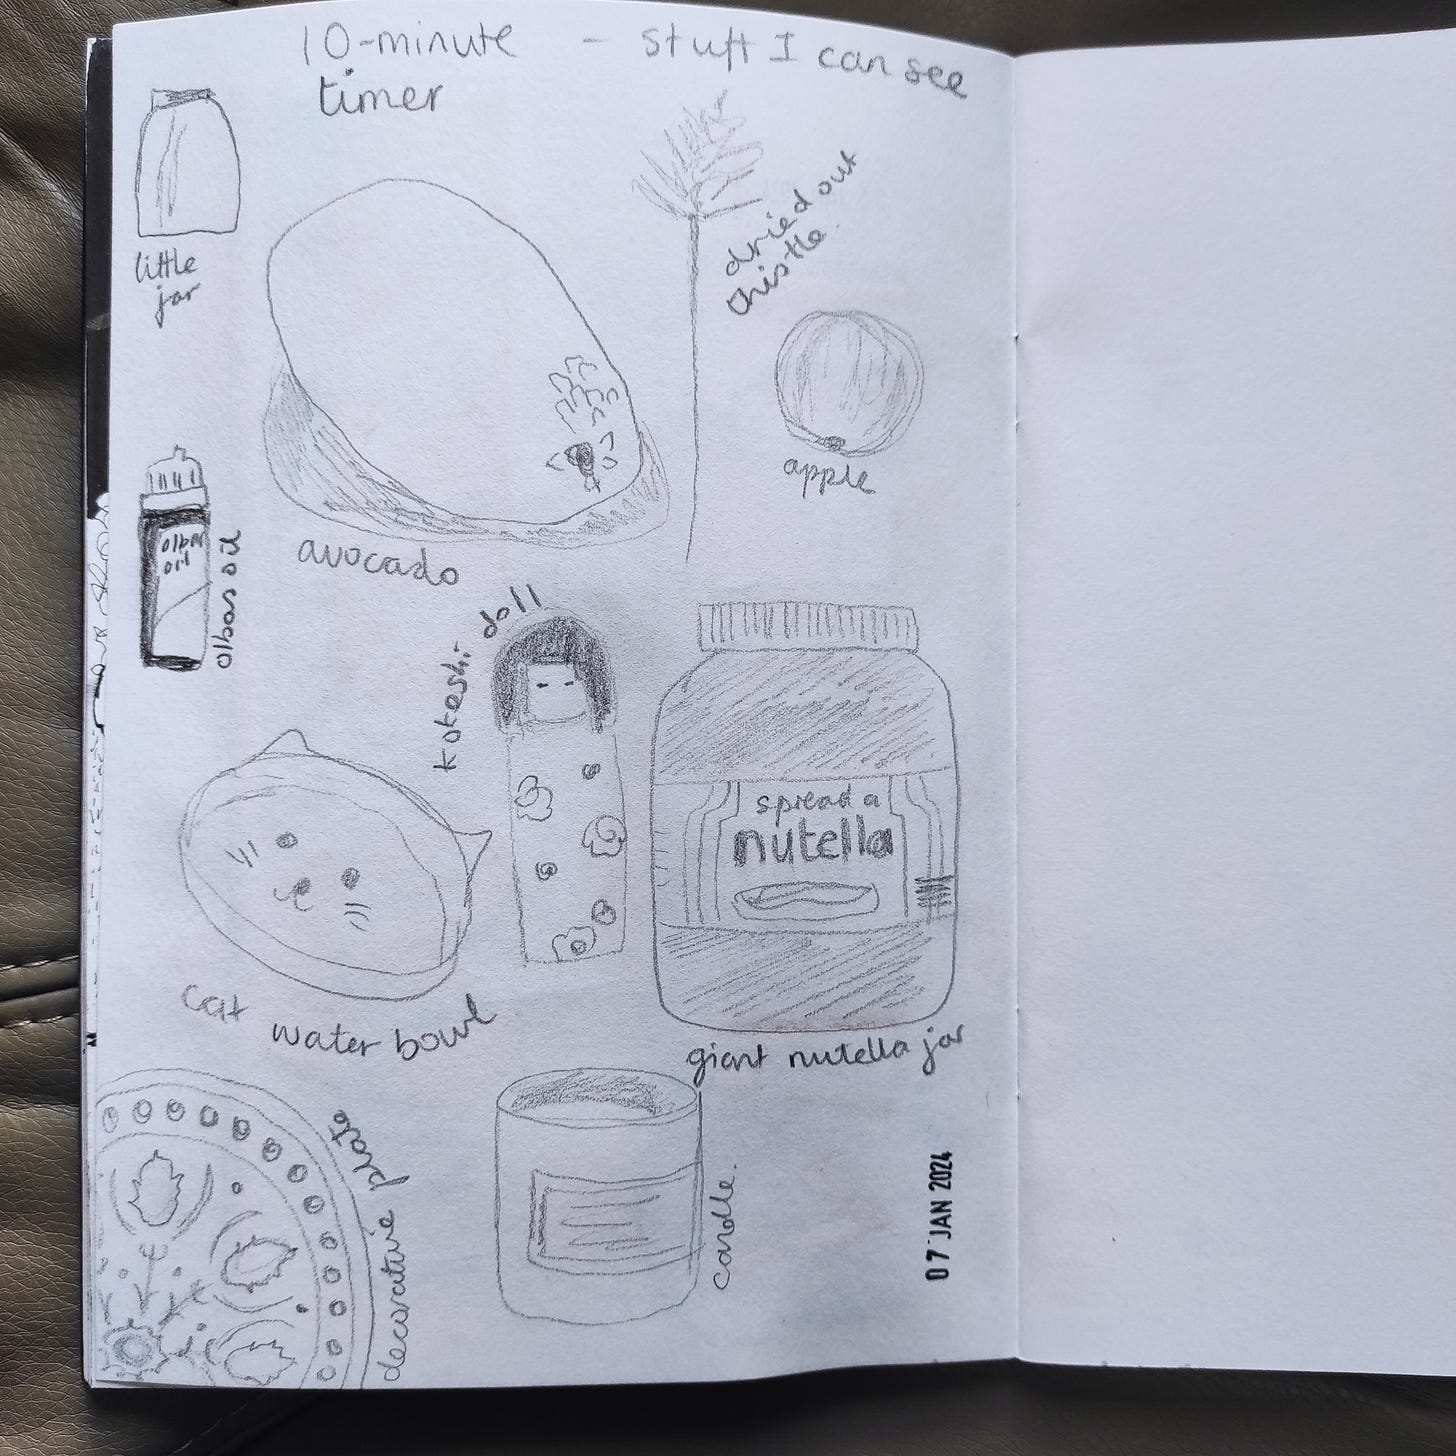 10-minute - stuff I can see
timer
little
jar
dried out
thistle.
apple
avocado
olbas
oil
olbas oil
kokeshi doll
spread a
nutella
giant nutella jar
cat water bowl
decorative plate
candle.
07 JAN 2024